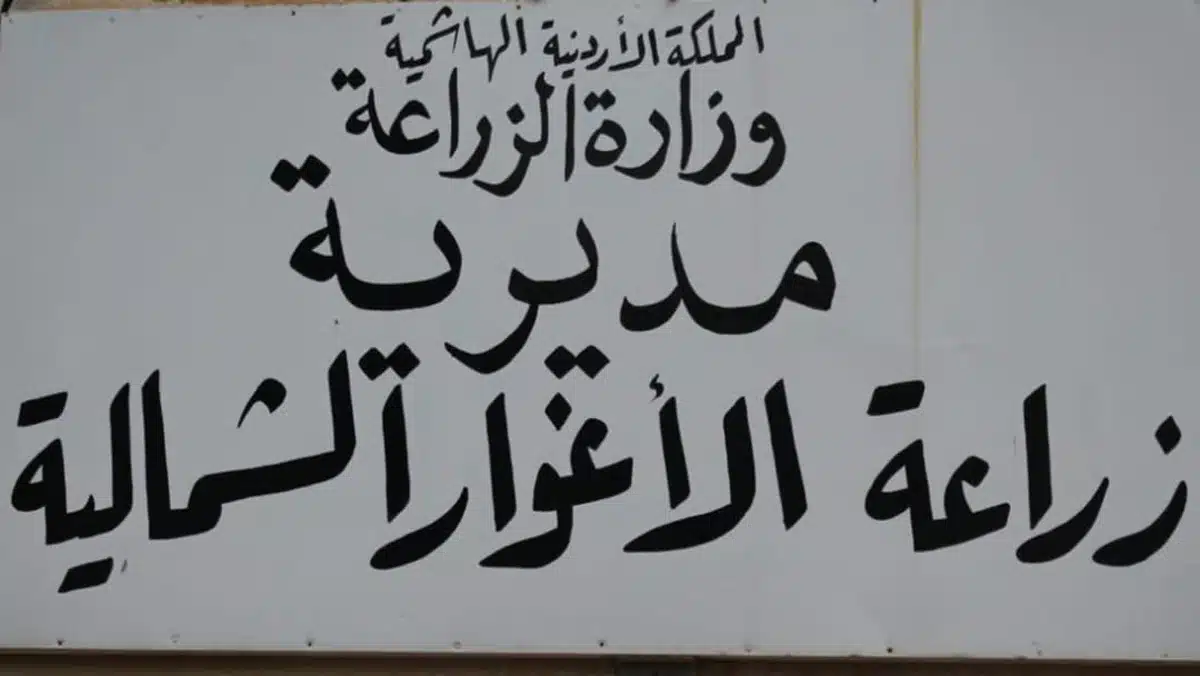 المملكة الأردنية الهاشمية
وزارة الزراعة
مديرية
زراعة الأغوار الشمالية